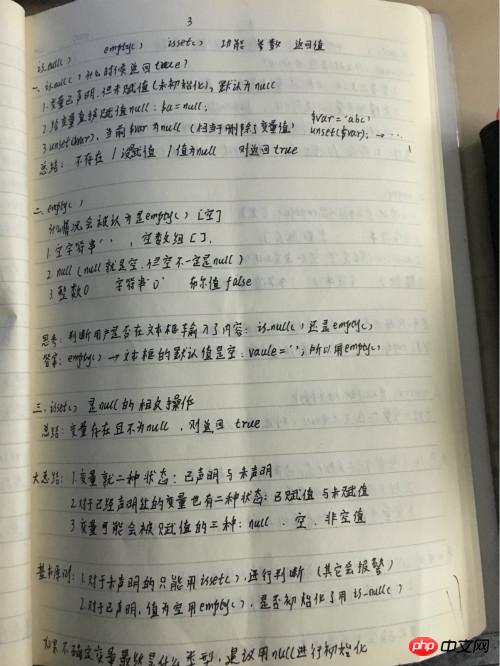 3
is_null() empty() isset() 功能 参数 返回值
一、is_null() 什么时候返回true?
1.变量已声明,但未赋值(未初始化),默认为null
2.给变量直接赋值null: $a=null;
$var='abc'
3.unset($var), 当前$var为null(相当于删除了变量值) unset($var); → ...
总结: 不存在 / 没赋值 / 值为null 则返回true
二、empty()
什么情况会被认为是empty() [空]
1.空字符串' ', 空数组[],
2.null (null就是空,但空不一定是null)
3.整数0 字符串'0' 布尔值false
思考: 判断用户是否在文本框中输入了内容: is_null() 还是empty()
答案: empty() → 文本框的默认值是空: vaule=' '; 所以用empty()
三、isset() 是null的相反操作
总结: 变量存在且不为null, 则返回 true
大总结: 1.变量就二种状态: 已声明与未声明
2.对于已经声明过的变量也有二种状态: 已赋值与未赋值
3.变量可能会被赋值的三种: null 、空、非空值
基本原则: 1.对于未声明的只能用isset(),进行判断 (其它会报警)
2.对于已声明, 值为空用empty(), 是否初始化了用is_null()
如果不确定变量最终是什么类型, 建议用null进行初始化
php中文网